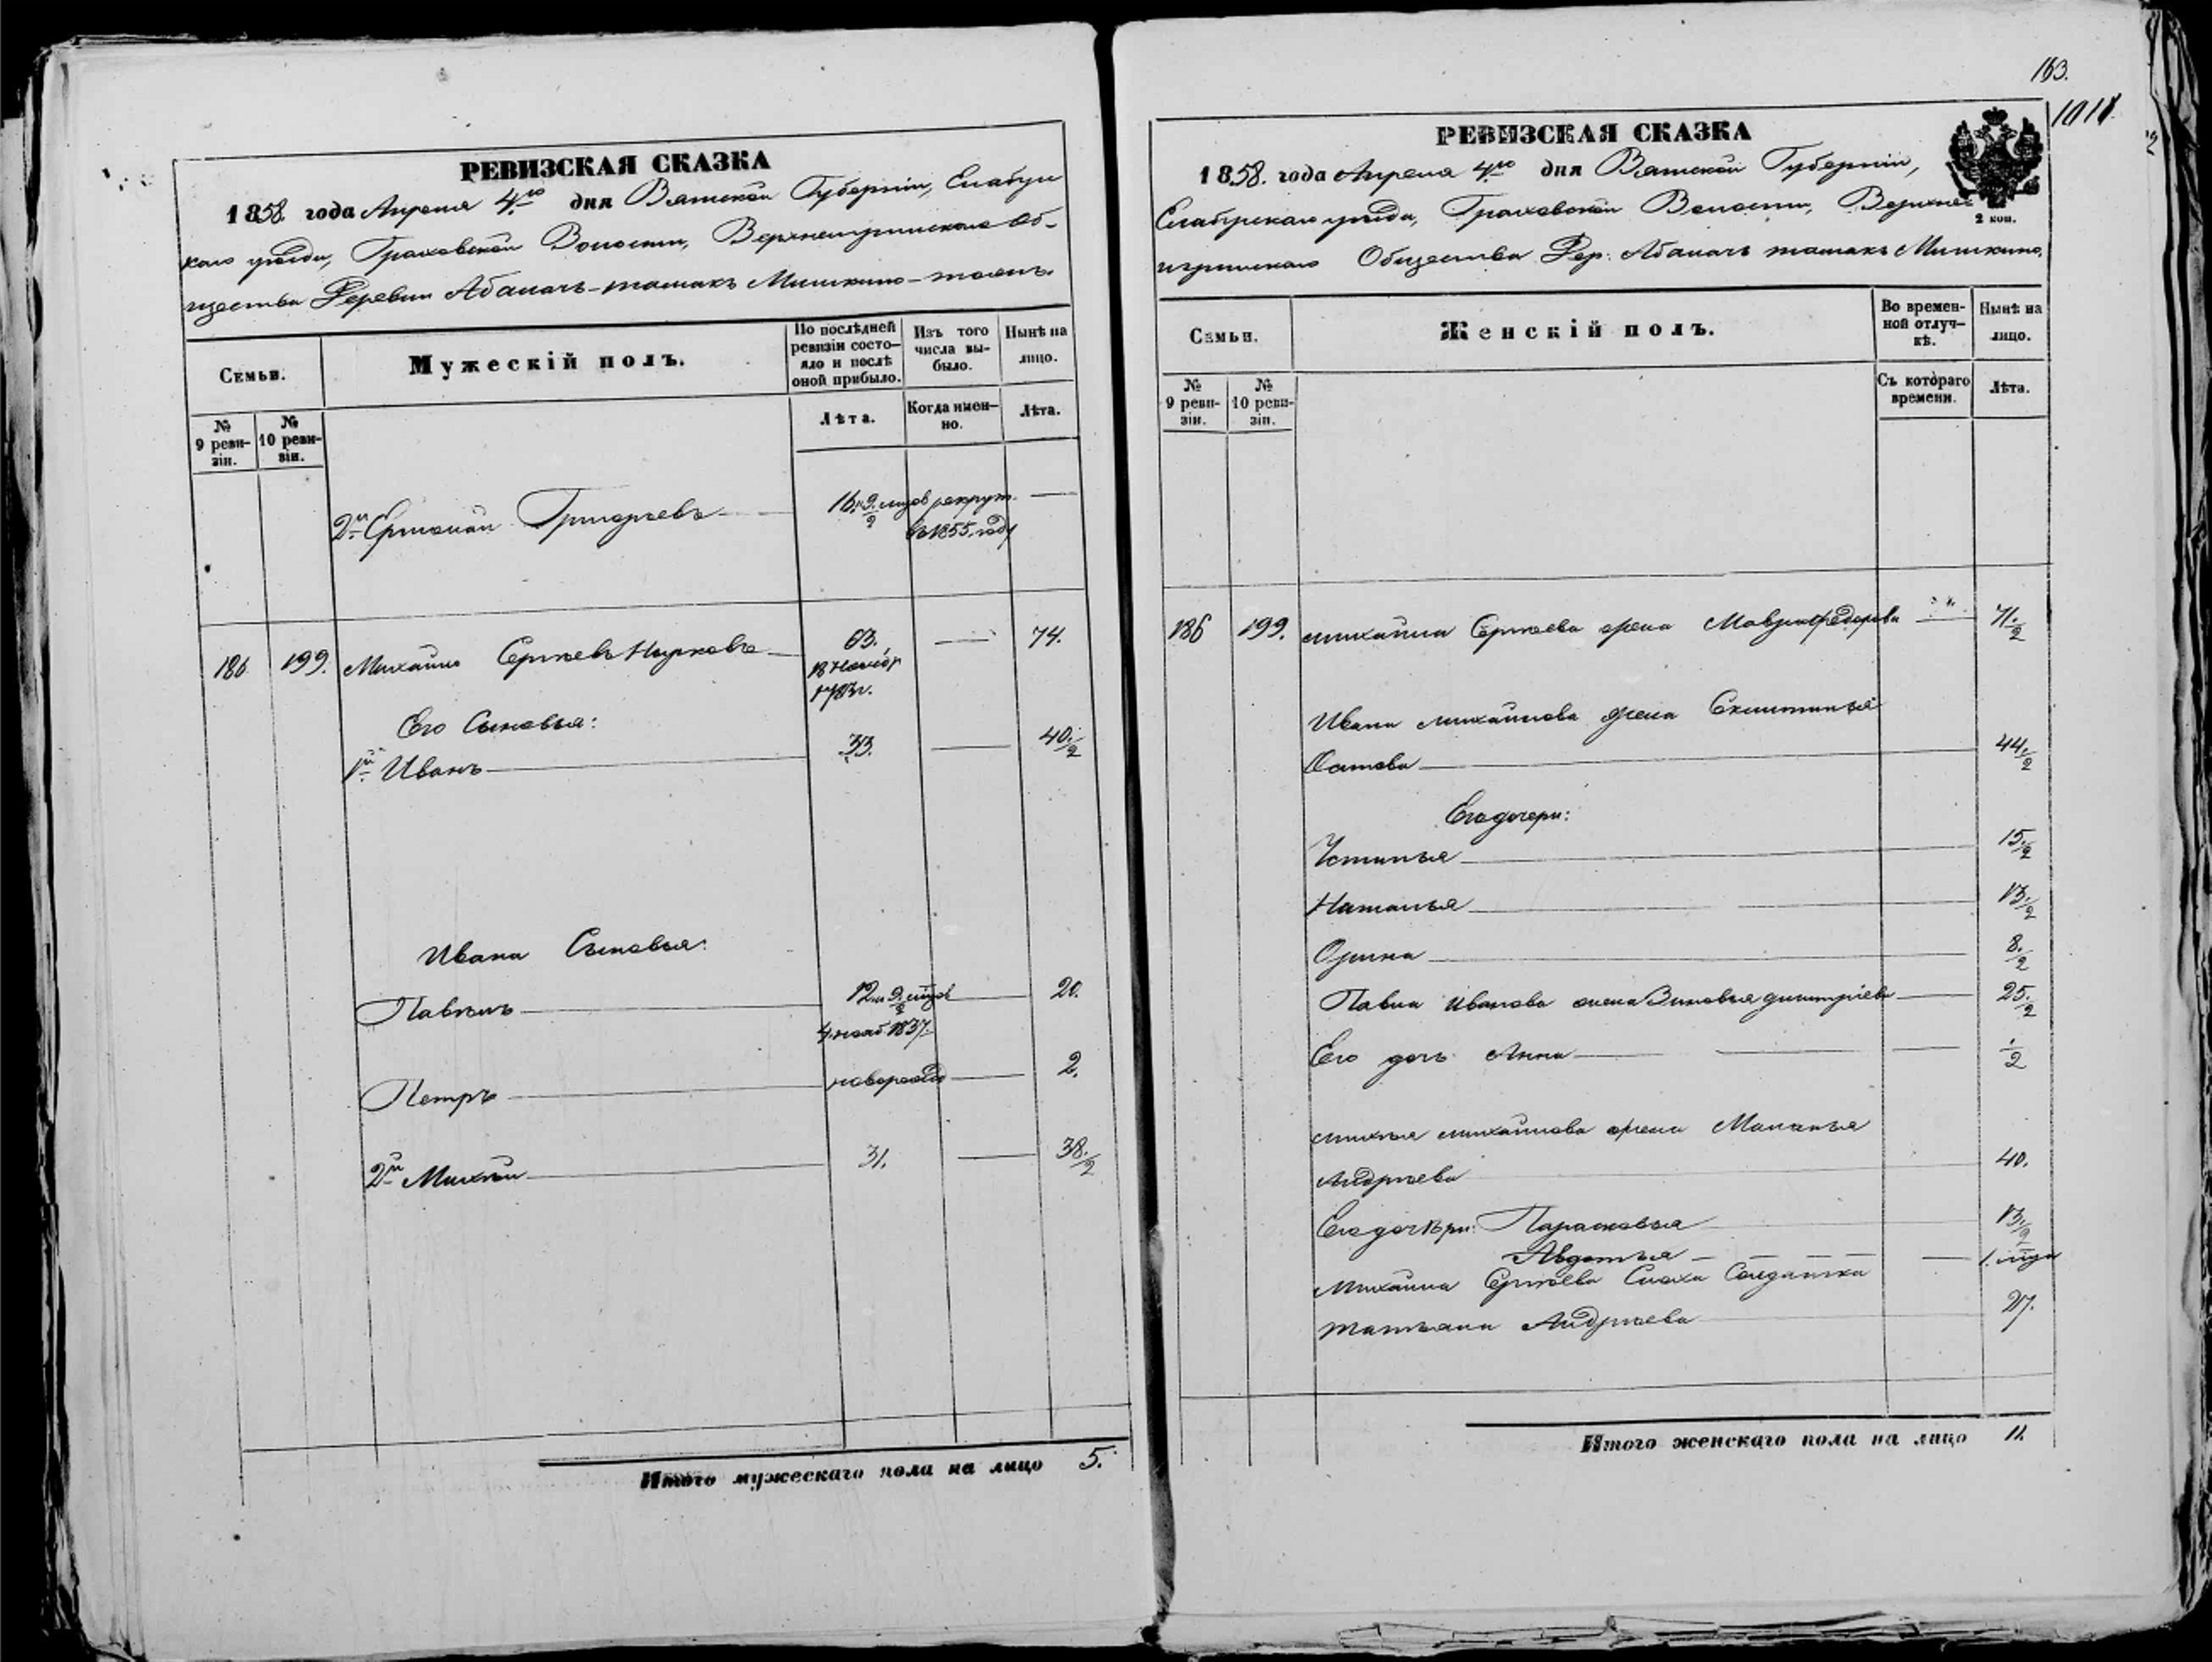 163.
1011
РЕВИЗСКАЯ СКАЗКА
1858. года Апреля 4го дня Вятской Губернiи, Елабуж
каго уѣзда, Граховской Волости, Верхнеигринскаго Об-
щества Деревни
Семьи.
Мужескiй полъ.
По послѣдней ревизiи состо- яло и послѣ оной прибыло.
Изъ того числа вы- было.
Нынѣ на лицо.
№ 9 реви- зiи.
№ 10 реви- зiи.
Лѣта.
Когда имен- но.
Лѣта.
2й Ермолай Григорьевъ 16 и 9/2 мцов рекрут. —
въ 1855. году
186 199. Михайло Сергѣевъ 63. — 74.
18 Ноябр
1783 г.
Его Сыновья:
1й Иванъ 33. — 40./2
Ивана Сыновья:
Павелъ 12 и 9/2 мцов — 20.
4. нояб. 1837.
Петръ новорожд — 2.
2й Михѣй 31. — 38./2
Итого мужескаго пола на лицо 5.
РЕВИЗСКАЯ СКАЗКА
1858. года Апреля 4го дня Вятской Губернiи,
Елабужскаго уѣзда, Граховской Волости, Верхне-
игринскаго Общества Дер.
2 коп.
Семьи.
Женскiй полъ.
Во времен- ной отлуч- кѣ.
Нынѣ на лицо.
№ 9 реви- зiи.
№ 10 реви- зiи.
Съ котораго времени.
Лѣта.
186 199. Михайла Сергѣева жена Мавра Федорова — 71./2
Ивана Михайлова жена
44./2
Его дочери:
Устинья 15./2
Наталья 13./2
Орина 8./2
Павла Иванова жена Зиновья Дмитрiева 25./2
Его дочь Анна — 1/2
Михѣя Михайлова жена Маланья
Андрѣева 40.
Его дочѣри: Парасковья 13./2
Авдотья — 1. мца
Михайла Сергѣева Сноха Солдатка
Татьяна Андрѣева 27.
Итого женскаго пола на лицо 11.